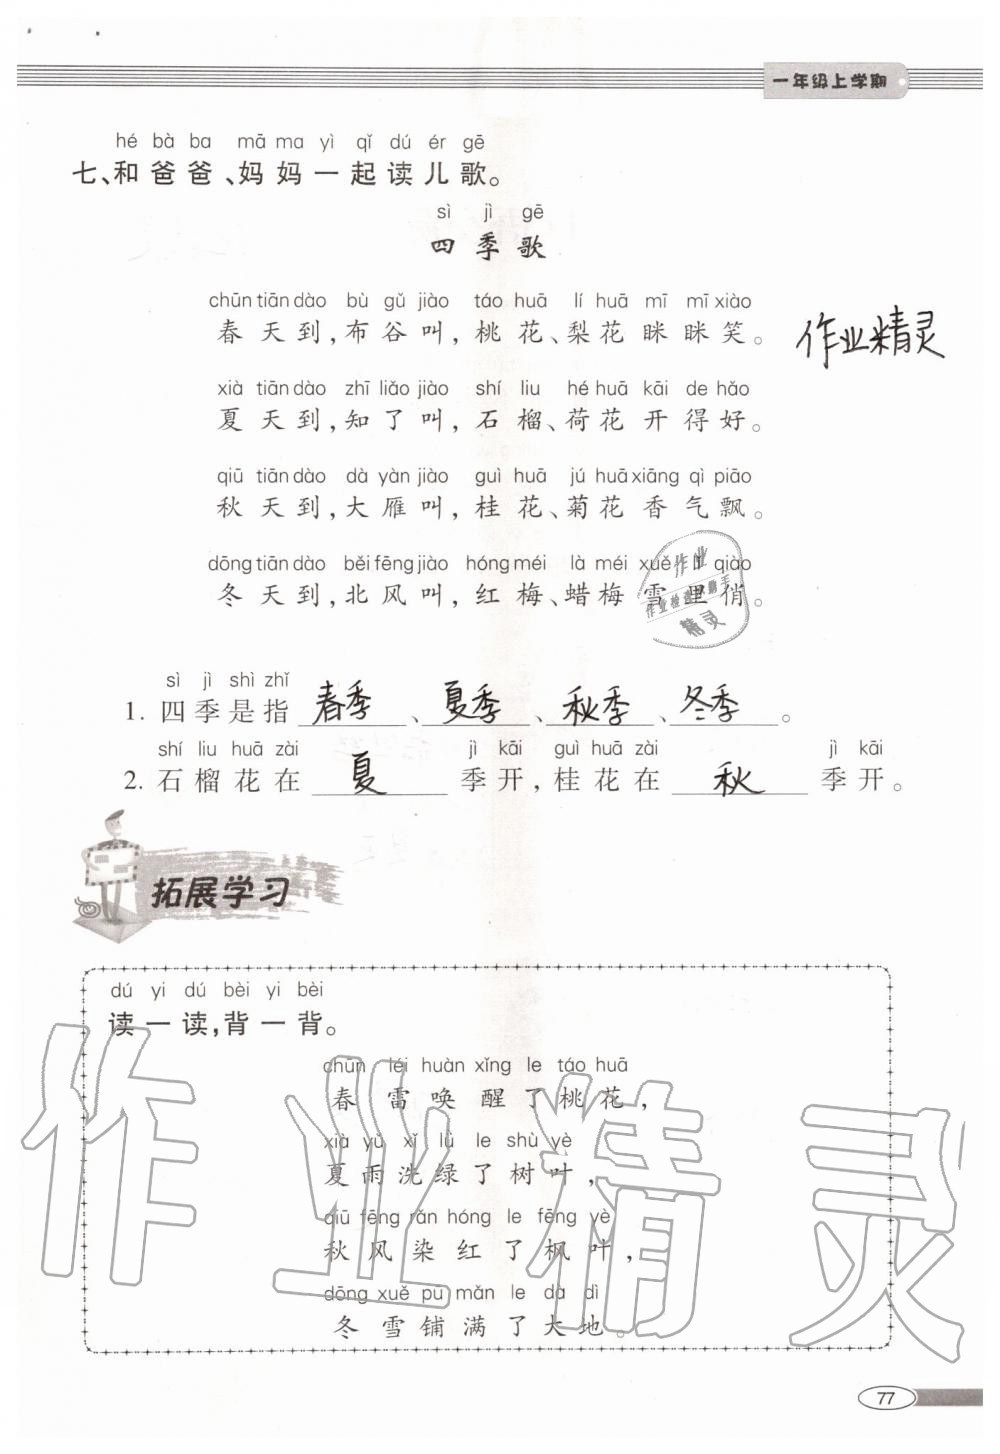 一年级上学期
hé bà ba mā ma yì qǐ dú ér gē
七、和爸爸、妈妈一起读儿歌。
sì jì gē
四季歌
chūn tiān dào bù gǔ jiào táo huā lí huā mī mī xiào
春天到,布谷叫,桃花、梨花眯眯笑。
作业精灵
xià tiān dào zhī liǎo jiào shí liu hé huā kāi de hǎo
夏天到,知了叫,石榴、荷花开得好。
qiū tiān dào dà yàn jiào guì huā jú huā xiāng qì piāo
秋天到,大雁叫,桂花、菊花香气飘。
dōng tiān dào běi fēng jiào hóng méi là méi xuě lǐ qiào
冬天到,北风叫,红梅、蜡梅雪里俏。
作业
作业检查小助手
精灵
sì jì shì zhǐ
1. 四季是指 春季 、 夏季 、 秋季 、 冬季 。
shí liu huā zài jì kāi guì huā zài jì kāi
2. 石榴花在 夏 季开,桂花在 秋 季开。
拓展学习
dú yi dú bèi yi bèi
读一读,背一背。
chūn léi huàn xǐng le táo huā
春雷唤醒了桃花,
xià yǔ xǐ lǜ le shù yè
夏雨洗绿了树叶,
qiū fēng rǎn hóng le fēng yè
秋风染红了枫叶,
dōng xuě pū mǎn le dà dì
冬雪铺满了大地。
作业精灵
77